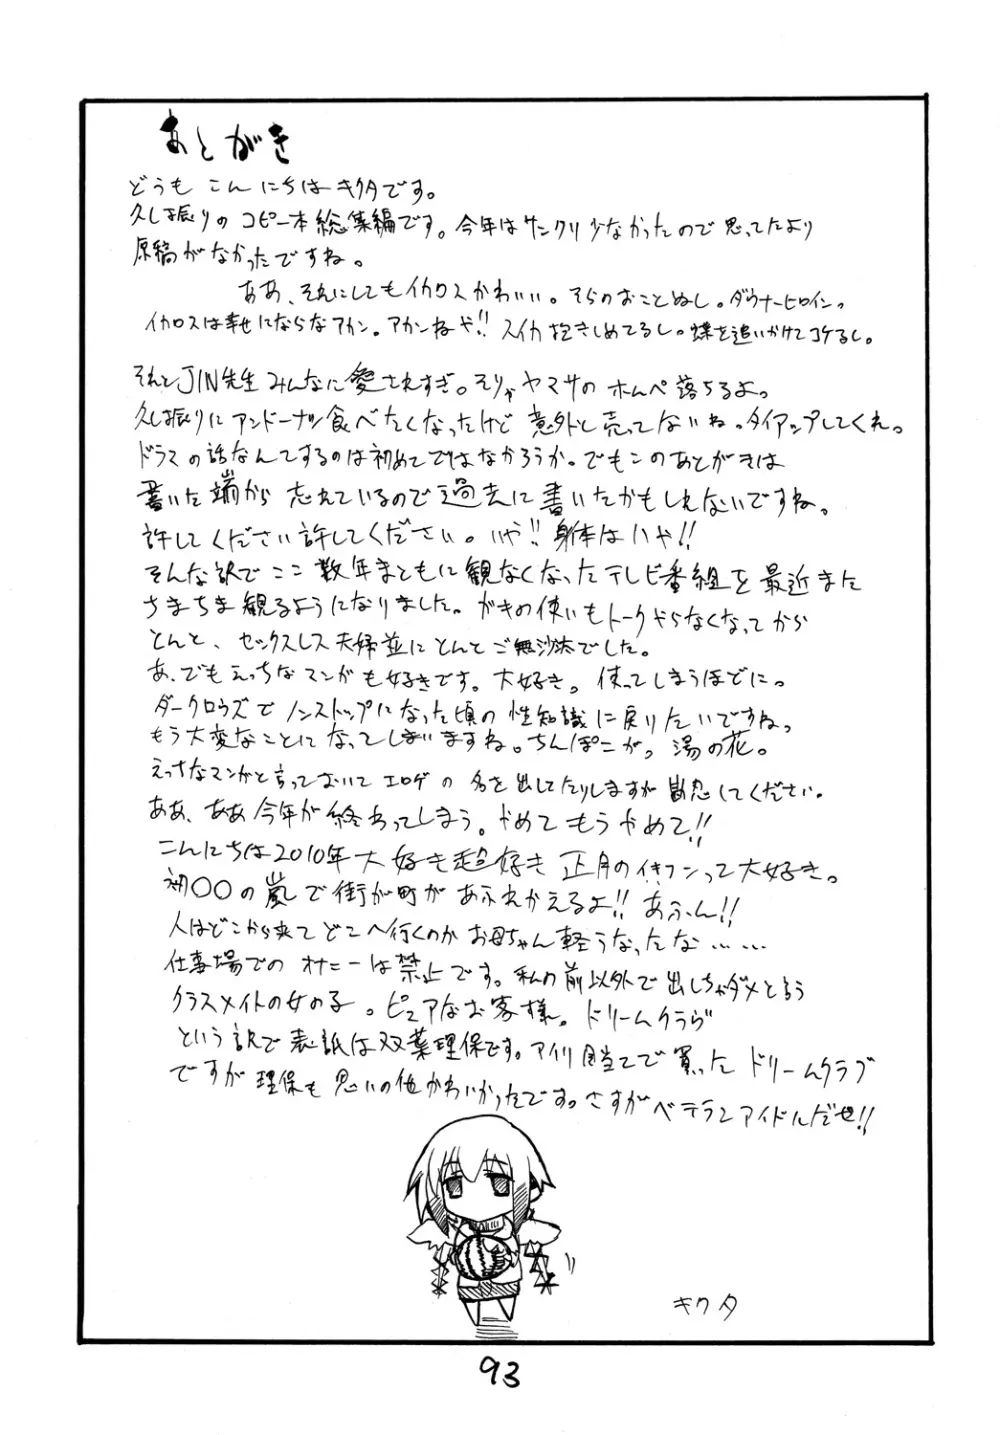 あとがき
どうも こんにちは キクタです。
久し振りの コピー本総集編です。今年はサンクリ少なかったので思ってたより
原稿がなかったですね。
ああ、それにしてもイカロスかわいい。そらのおことぬし。ダウナーヒロイン。
イカロスは幸せにならなアカン。アカンねや!! スイカ抱きしめてるし。蝶を追いかけてコケるし。
それとJIN先生みんなに愛されすぎ。そりゃヤマサのホムペ落ちるよ。
久し振りにアンドーナツ食べたくなったけど意外と売ってないね。タイアップしてくれ。
ドラマの話なんてするのは初めてではなかろうか。でもこのあとがきは
書いた端から忘れているので過去に書いたかもしれないですね。
許してください許してください。いや!! 身体はいや!!
そんな訳でここ数年まともに観なくなったテレビ番組を最近また
ちまちま観るようになりました。ガキの使いもトークやらなくなってから
とんと、セックスレス夫婦並にとんとご無沙汰でした。
あ、でもえっちなマンガも好きです。大好き。使ってしまうほどに。
ダークロウズでノンストップになった頃の性知識に戻りたいですね。
もう大変なことになってしまいますね。ちんぽこがっ 湯の花。
えっちなマンガと言っておいてエロゲの名を出してたりしますが勘忍してください。
ああ、ああ今年が終わってしまう。やめてもうやめて!!
こんにちは2010年大好き超好き 正月のイキフンって大好き。
初〇〇の嵐で街が町があふれかえるよ!! あふん!!
人はどこから来てどこへ行くのかお母ちゃん軽うなったな……
仕事場でのオナニーは禁止です。私の前以外で出しちゃダメと言う
クラスメイトの女の子。ピュアなお客様。ドリームクラヴ
という訳で表紙は双葉理保です。アイリ目当てで買ったドリームクラブ
ですが理保も思いの他かわいかったです。さすがベテランアイドルだぜ!!
キクタ
93